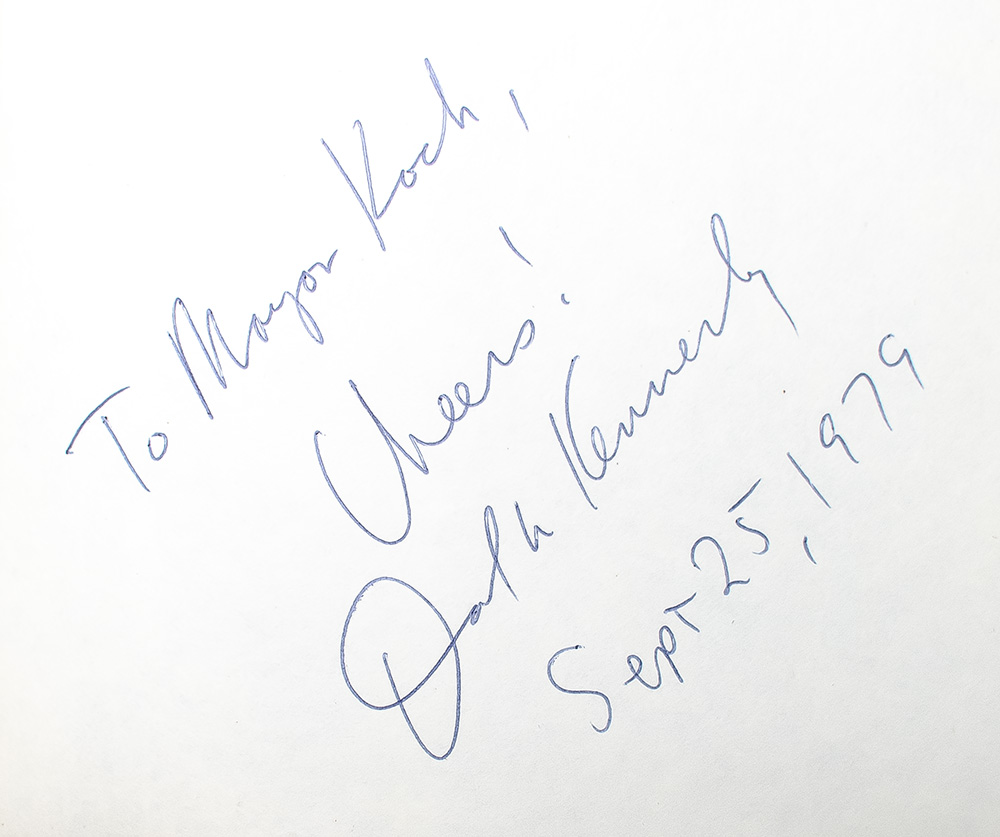 To Mayor Koch,
Cheers!
Kennerly
Sept 25, 1979